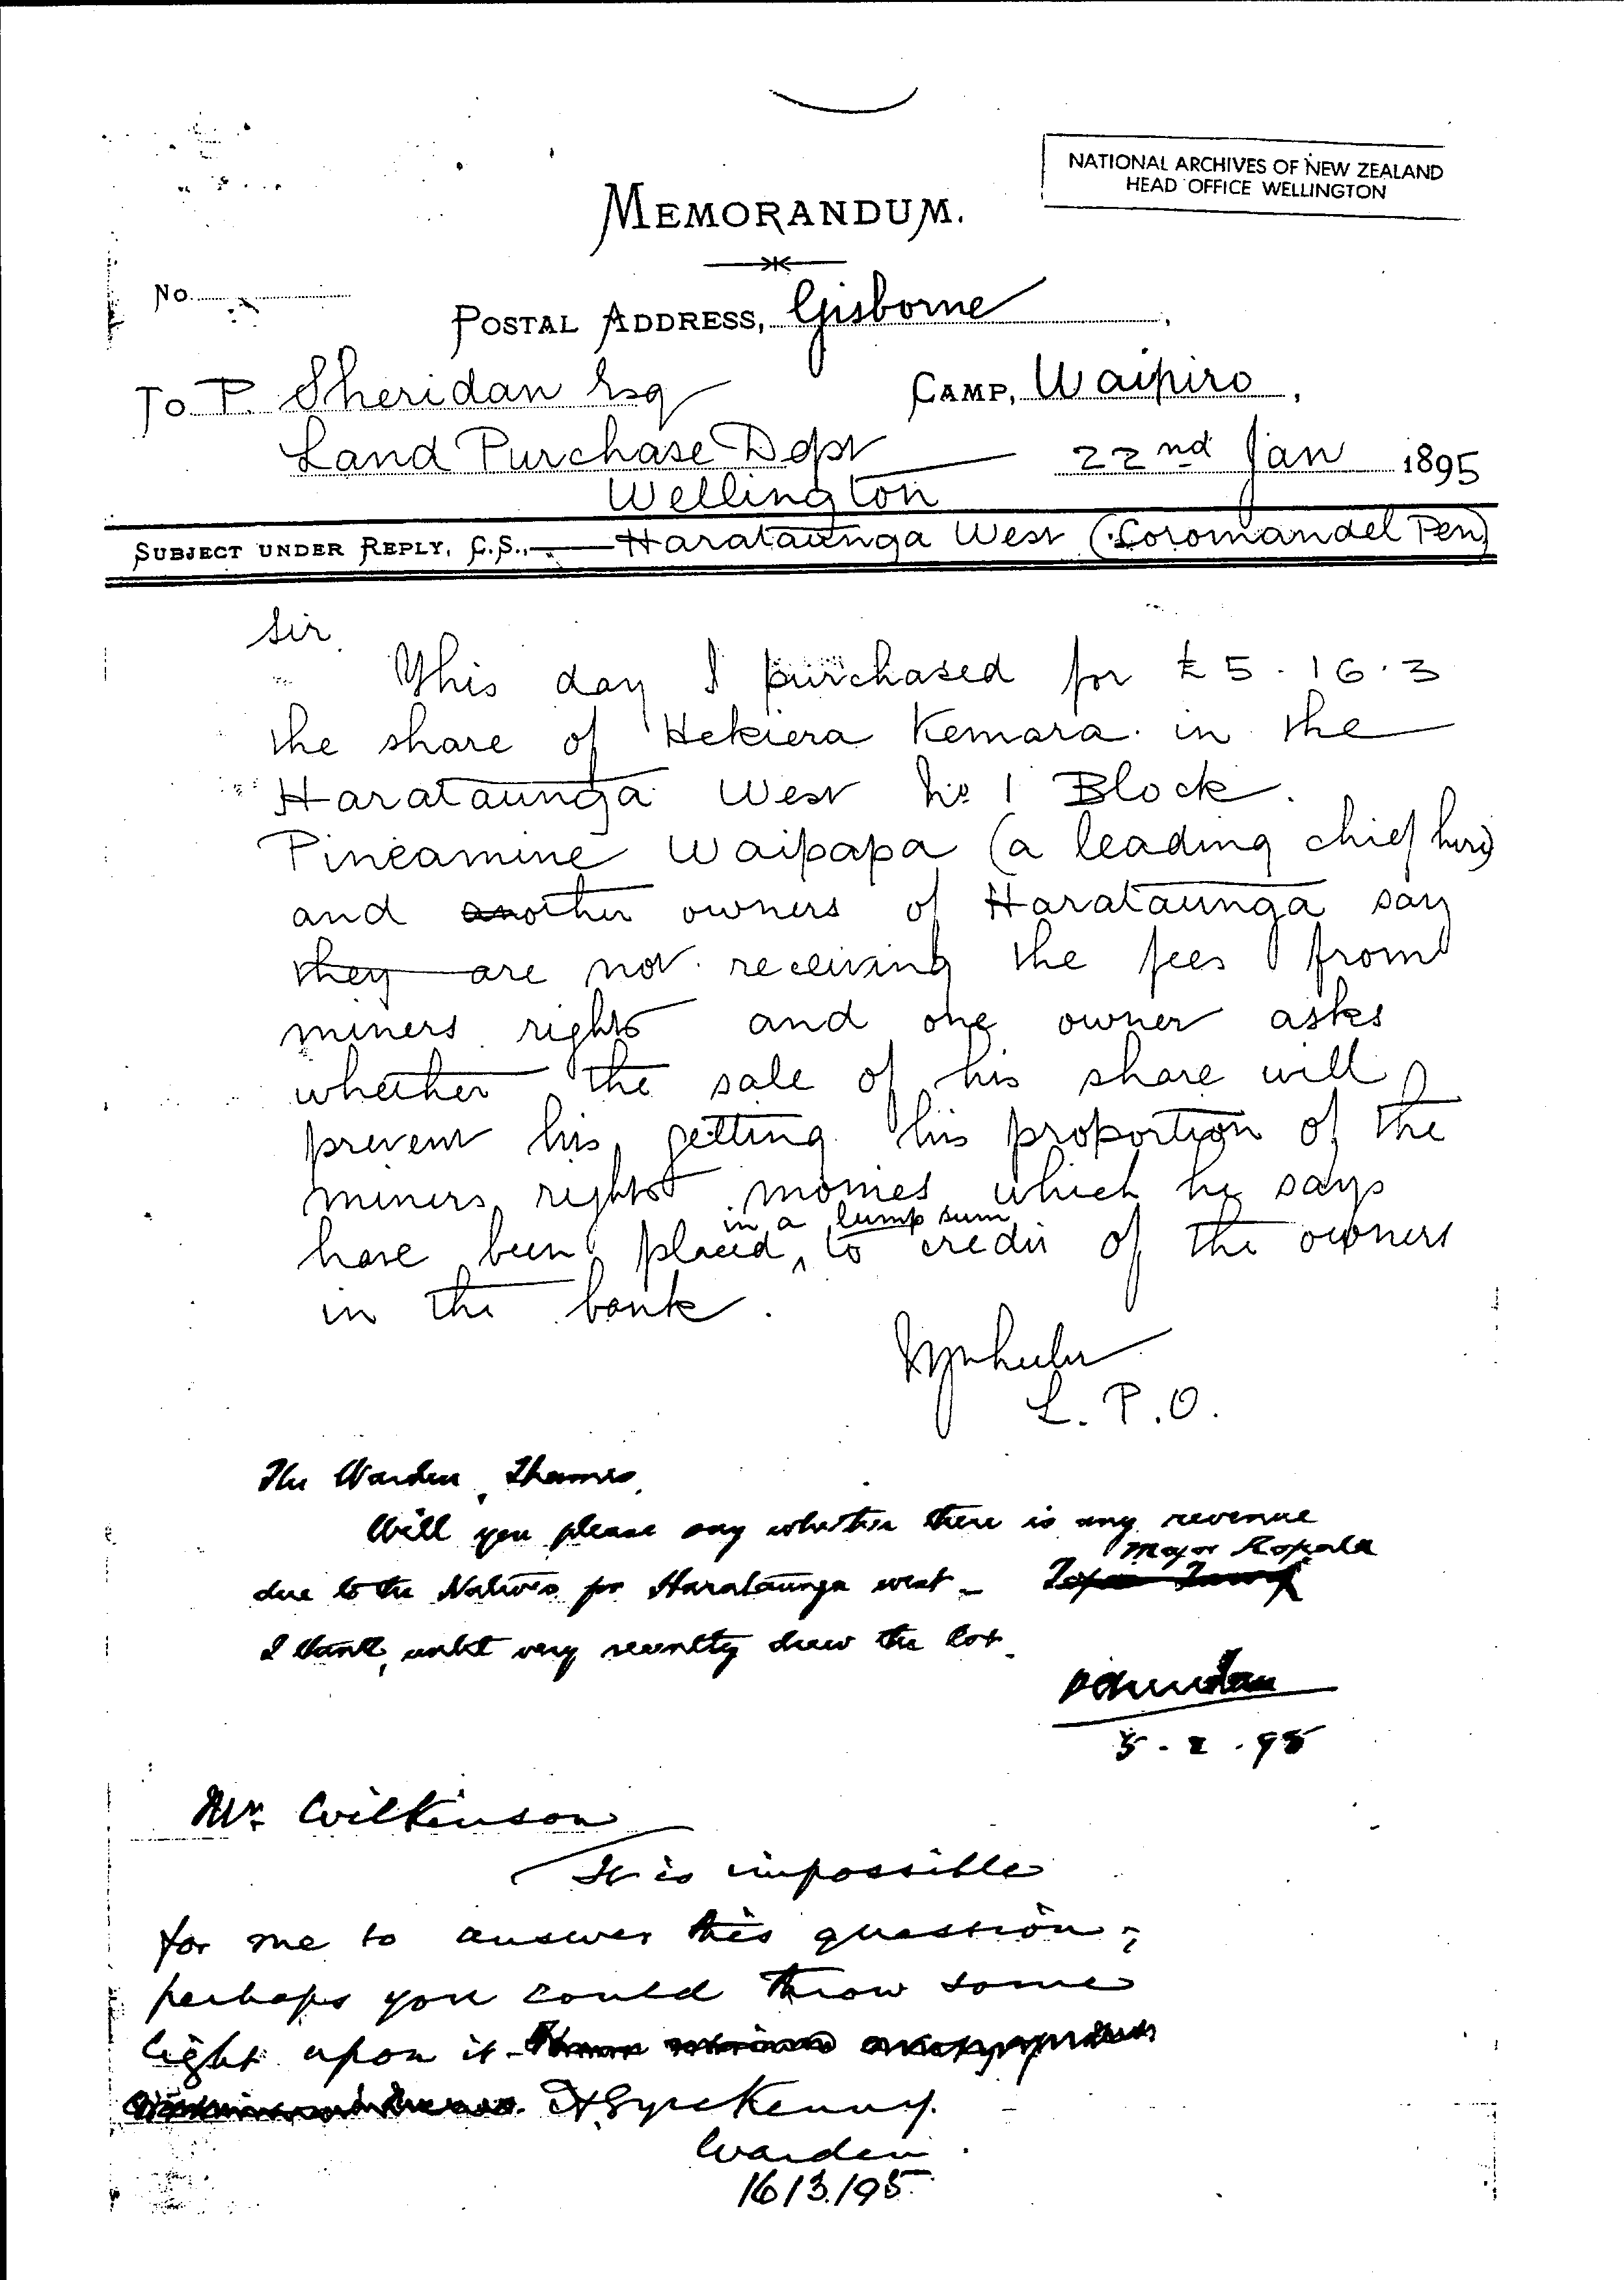 NATIONAL ARCHIVES OF NEW ZEALAND
HEAD OFFICE WELLINGTON
MEMORANDUM.
No.
POSTAL ADDRESS, Gisborne
To P. Sheridan Esq
CAMP, Waipiro,
Land Purchase Dept
22nd Jan 1895
Wellington
SUBJECT UNDER REPLY, C.S., Harataunga West (Coromandel Pen)
Sir
This day I purchased for £5.16.3
the share of Hekiera Kemara in the
Harataunga West No 1 Block.
Pineamine Waipapa (a leading chief here)
and other owners of Harataunga say
they are not receiving the fees from
miners rights and one owner asks
whether the sale of his share will
prevent his getting his proportion of the
miners rights monies which he says
in a lump sum
have been placed ^ to credit of the owners
in the bank.
L. P. O.
The Warden, Thames.
Will you please say whether there is any revenue
Major Ropata
due to the Natives for Harataunga west -
I think, until very recently drew the lot.
5.2.95
Mr. Wilkinson
It is impossible
for me to answer this question;
perhaps you could throw some
light upon it -
H. Eyre Kenny.
Warden.
16/3/95.